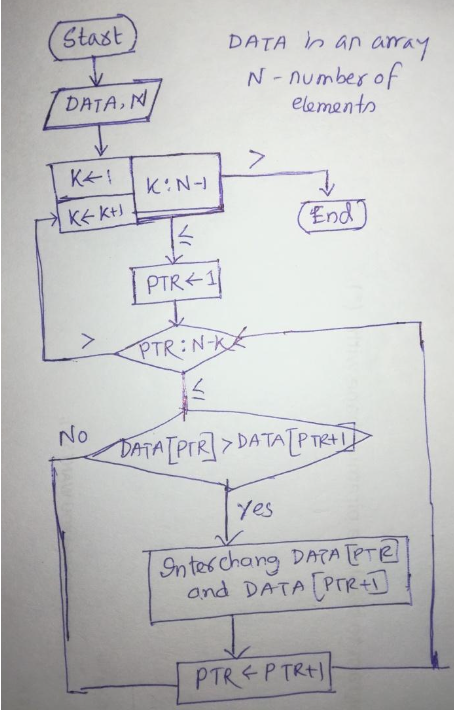 Start
DATA is an array
N - number of
elements
DATA, N
K←1
K:N-1
>
K←K+1
End
≤
PTR←1
>
PTR:N-K
≤
No
DATA[PTR] > DATA[PTR+1]
Yes
Interchang DATA [PTR]
and DATA [PTR+1]
PTR ← PTR+1